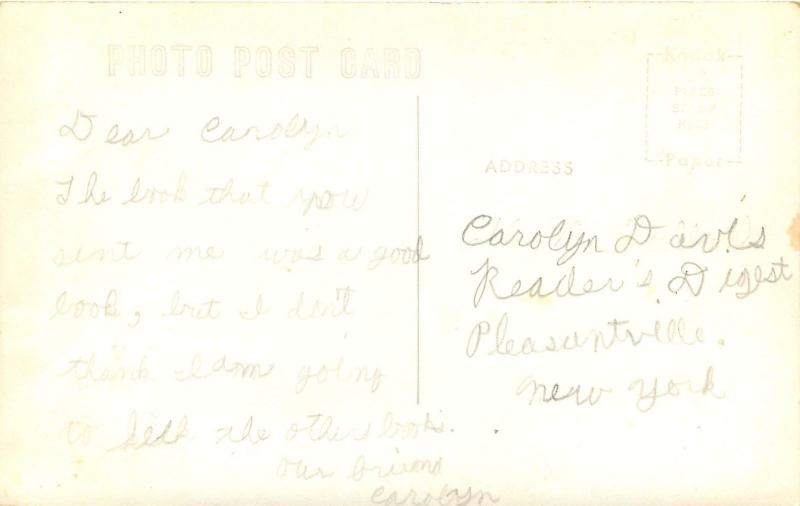 PHOTO POST CARD
Dear Carolyn
The book that you
sent me was a good
book, but I don't
thank I am going
to the other books.
our
Carolyn
Kodak
PLACE
STAMP
HERE
Paper
ADDRESS
Carolyn Davis
Reader's Digest
Pleasantville.
New York